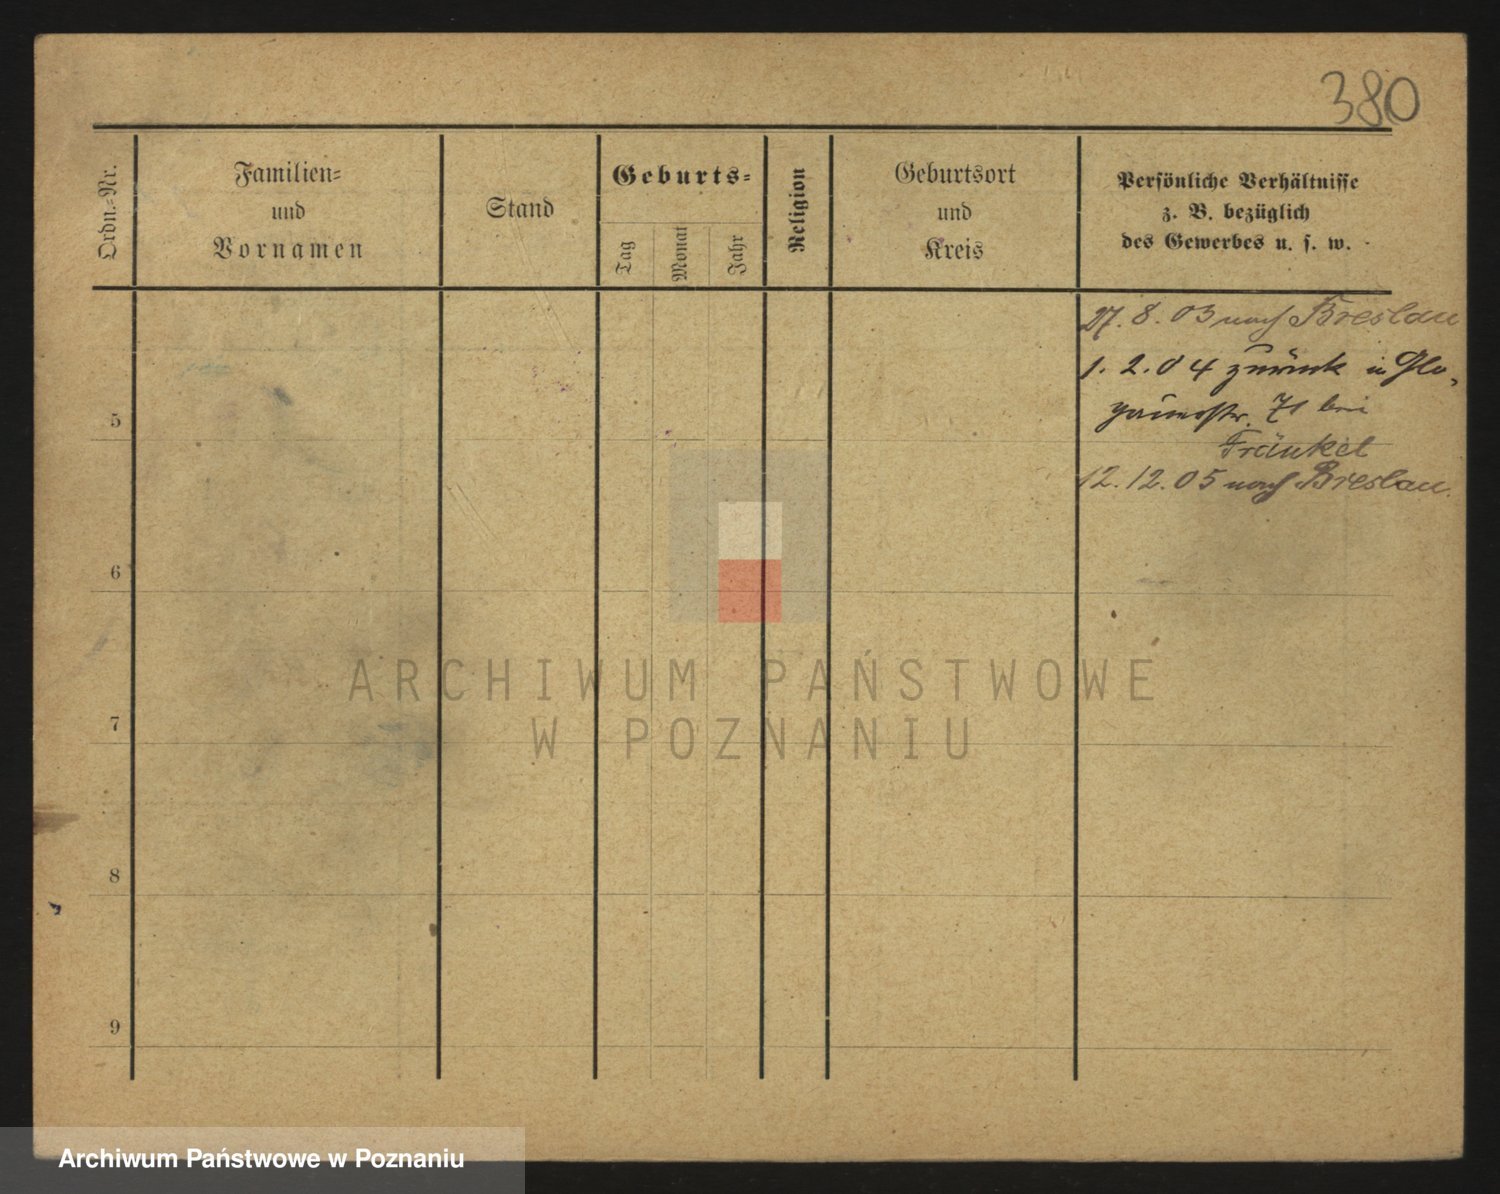 380
Ordn.-Nr.
Familien-
und
Vornamen
Stand
Geburts-
Tag
Monat
Jahr
Religion
Geburtsort
und
Kreis
Persönliche Verhältnisse
z. B. bezüglich
des Gewerbes u. s. w.
27. 8. 03 nach Breslau
1. 2. 04 zurück in Glo-
gauerstr. 71 bei
Fränkel
12. 12. 05 nach Breslau.
5
6
7
8
9
ARCHIWUM PAŃSTWOWE
W POZNANIU
Archiwum Państwowe w Poznaniu